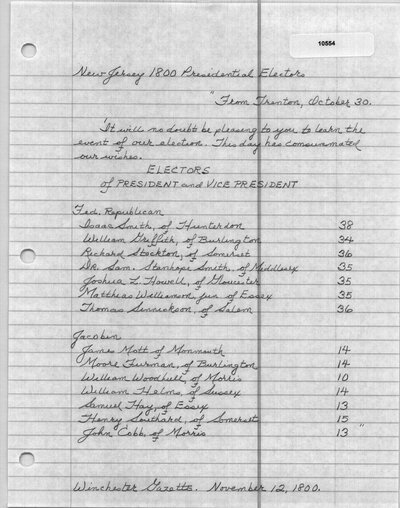 10554
New Jersey 1800 Presidential Electors
"From Trenton, October 30.
'It will no doubt be pleasing to you to learn the
event of our election. This day has consummated
our wishes.
ELECTORS
of PRESIDENT and VICE PRESIDENT
Fed. Republican
Isaac Smith, of Hunterdon 38
William Griffith, of Burlington 34
Richard Stockton, of Somerset 36
Dr. Sam. Stanhope Smith, of Middlesex 35
Joshua L. Howell, of Gloucester 35
Matthias Williamson, jun of Essex 35
Thomas Sinnickson, of Salem 36
Jacobin
James Mott of Monmouth 14
Moore Furman, of Burlington 14
William Woodhull, of Morris 10
William Helms, of Sussex 14
Samuel Hay, of Essex 13
Henry Southard, of Somerset 15
John Cobb, of Morris 13 "
Winchester Gazette. November 12, 1800.